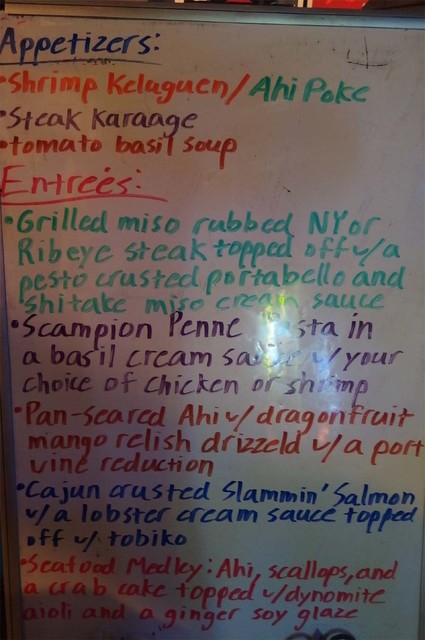 Appetizers:
•Shrimp Kelaguen/Ahi Poke
•Steak Karaage
•tomato basil soup
Entreés:
•Grilled miso rubbed NY or
Ribeye steak topped off w/a
pesto crusted portabello and
shitake miso cream sauce
•Scampion Penne Pasta in
a basil cream sauce w/your
choice of chicken or shrimp
•Pan-seared Ahi w/dragonfruit
mango relish drizzeld w/a port
vine reduction
•Cajun crusted Slammin' Salmon
w/a lobster cream sauce topped
off w/ tobiko
•Seafood Medley: Ahi, scallops, and
a crab cake topped w/dynomite
aioli and a ginger soy glaze